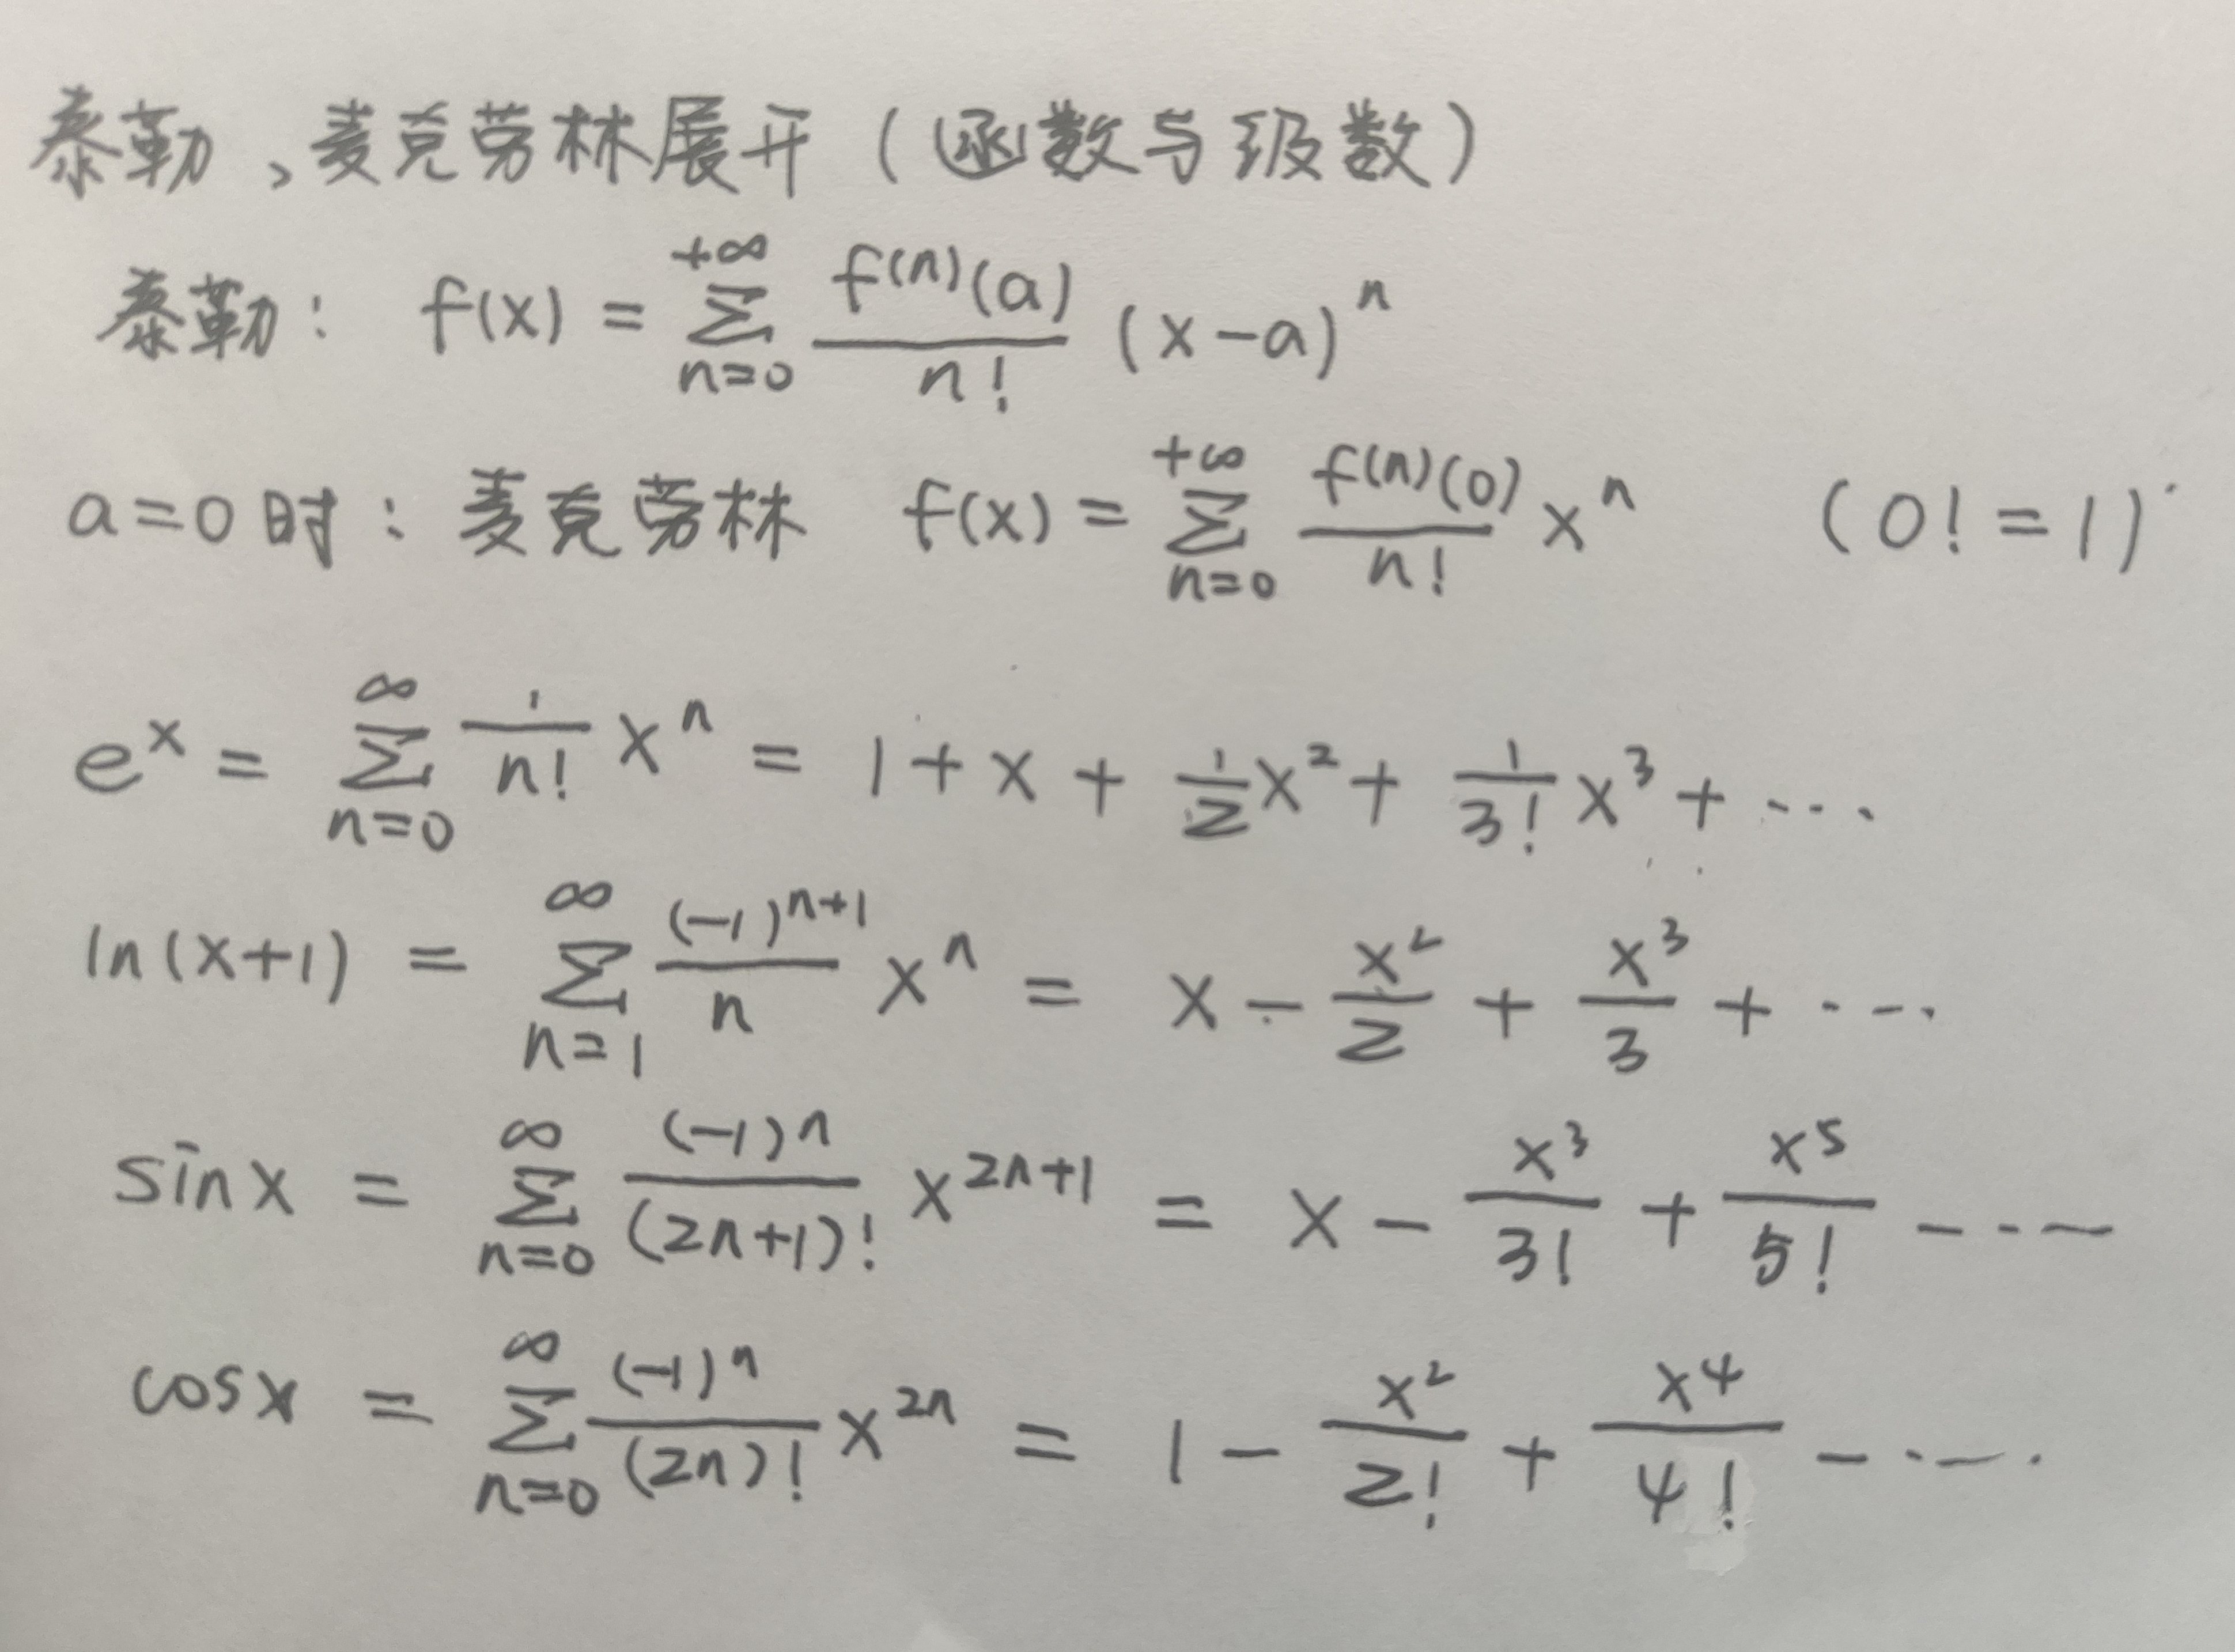 泰勒、麦克劳林展开（函数与级数）
泰勒： f(x) = \sum_{n=0}^{+\infty} \frac{f^{(n)}(a)}{n!} (x-a)^n
a=0时：麦克劳林 f(x) = \sum_{n=0}^{+\infty} \frac{f^{(n)}(0)}{n!} x^n (0! = 1)
e^x = \sum_{n=0}^{\infty} \frac{1}{n!} x^n = 1 + x + \frac{1}{2} x^2 + \frac{1}{3!} x^3 + ...
ln(x+1) = \sum_{n=1}^{\infty} \frac{(-1)^{n+1}}{n} x^n = x - \frac{x^2}{2} + \frac{x^3}{3} + ...
sin x = \sum_{n=0}^{\infty} \frac{(-1)^n}{(2n+1)!} x^{2n+1} = x - \frac{x^3}{3!} + \frac{x^5}{5!} - ...
cos x = \sum_{n=0}^{\infty} \frac{(-1)^n}{(2n)!} x^{2n} = 1 - \frac{x^2}{2!} + \frac{x^4}{4!} - ...